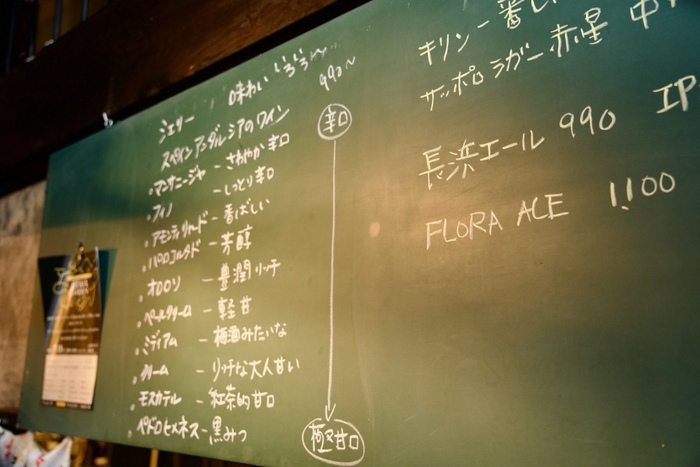 シェリー 味わいいろいろ〜
990〜
スペインアンダルシアのワイン
・マンサニージャ － さわやか辛口
・フィノ － しっとり辛口
・アモンティリャード － 香ばしい
・パロコルタド － 芳醇
・オロロソ － 豊潤リッチ
・ペールクリーム － 軽甘
・ミディアム － 梅酒みたいな
・クリーム － リッチな大人甘い
・モスカテル － 紅茶的甘口
・ペドロヒメネス － 黒みつ
辛口
極甘口
キリン － 一番し
サッポロラガー 赤星 中
長浜エール 990 IP
FLORA ACE 1,100